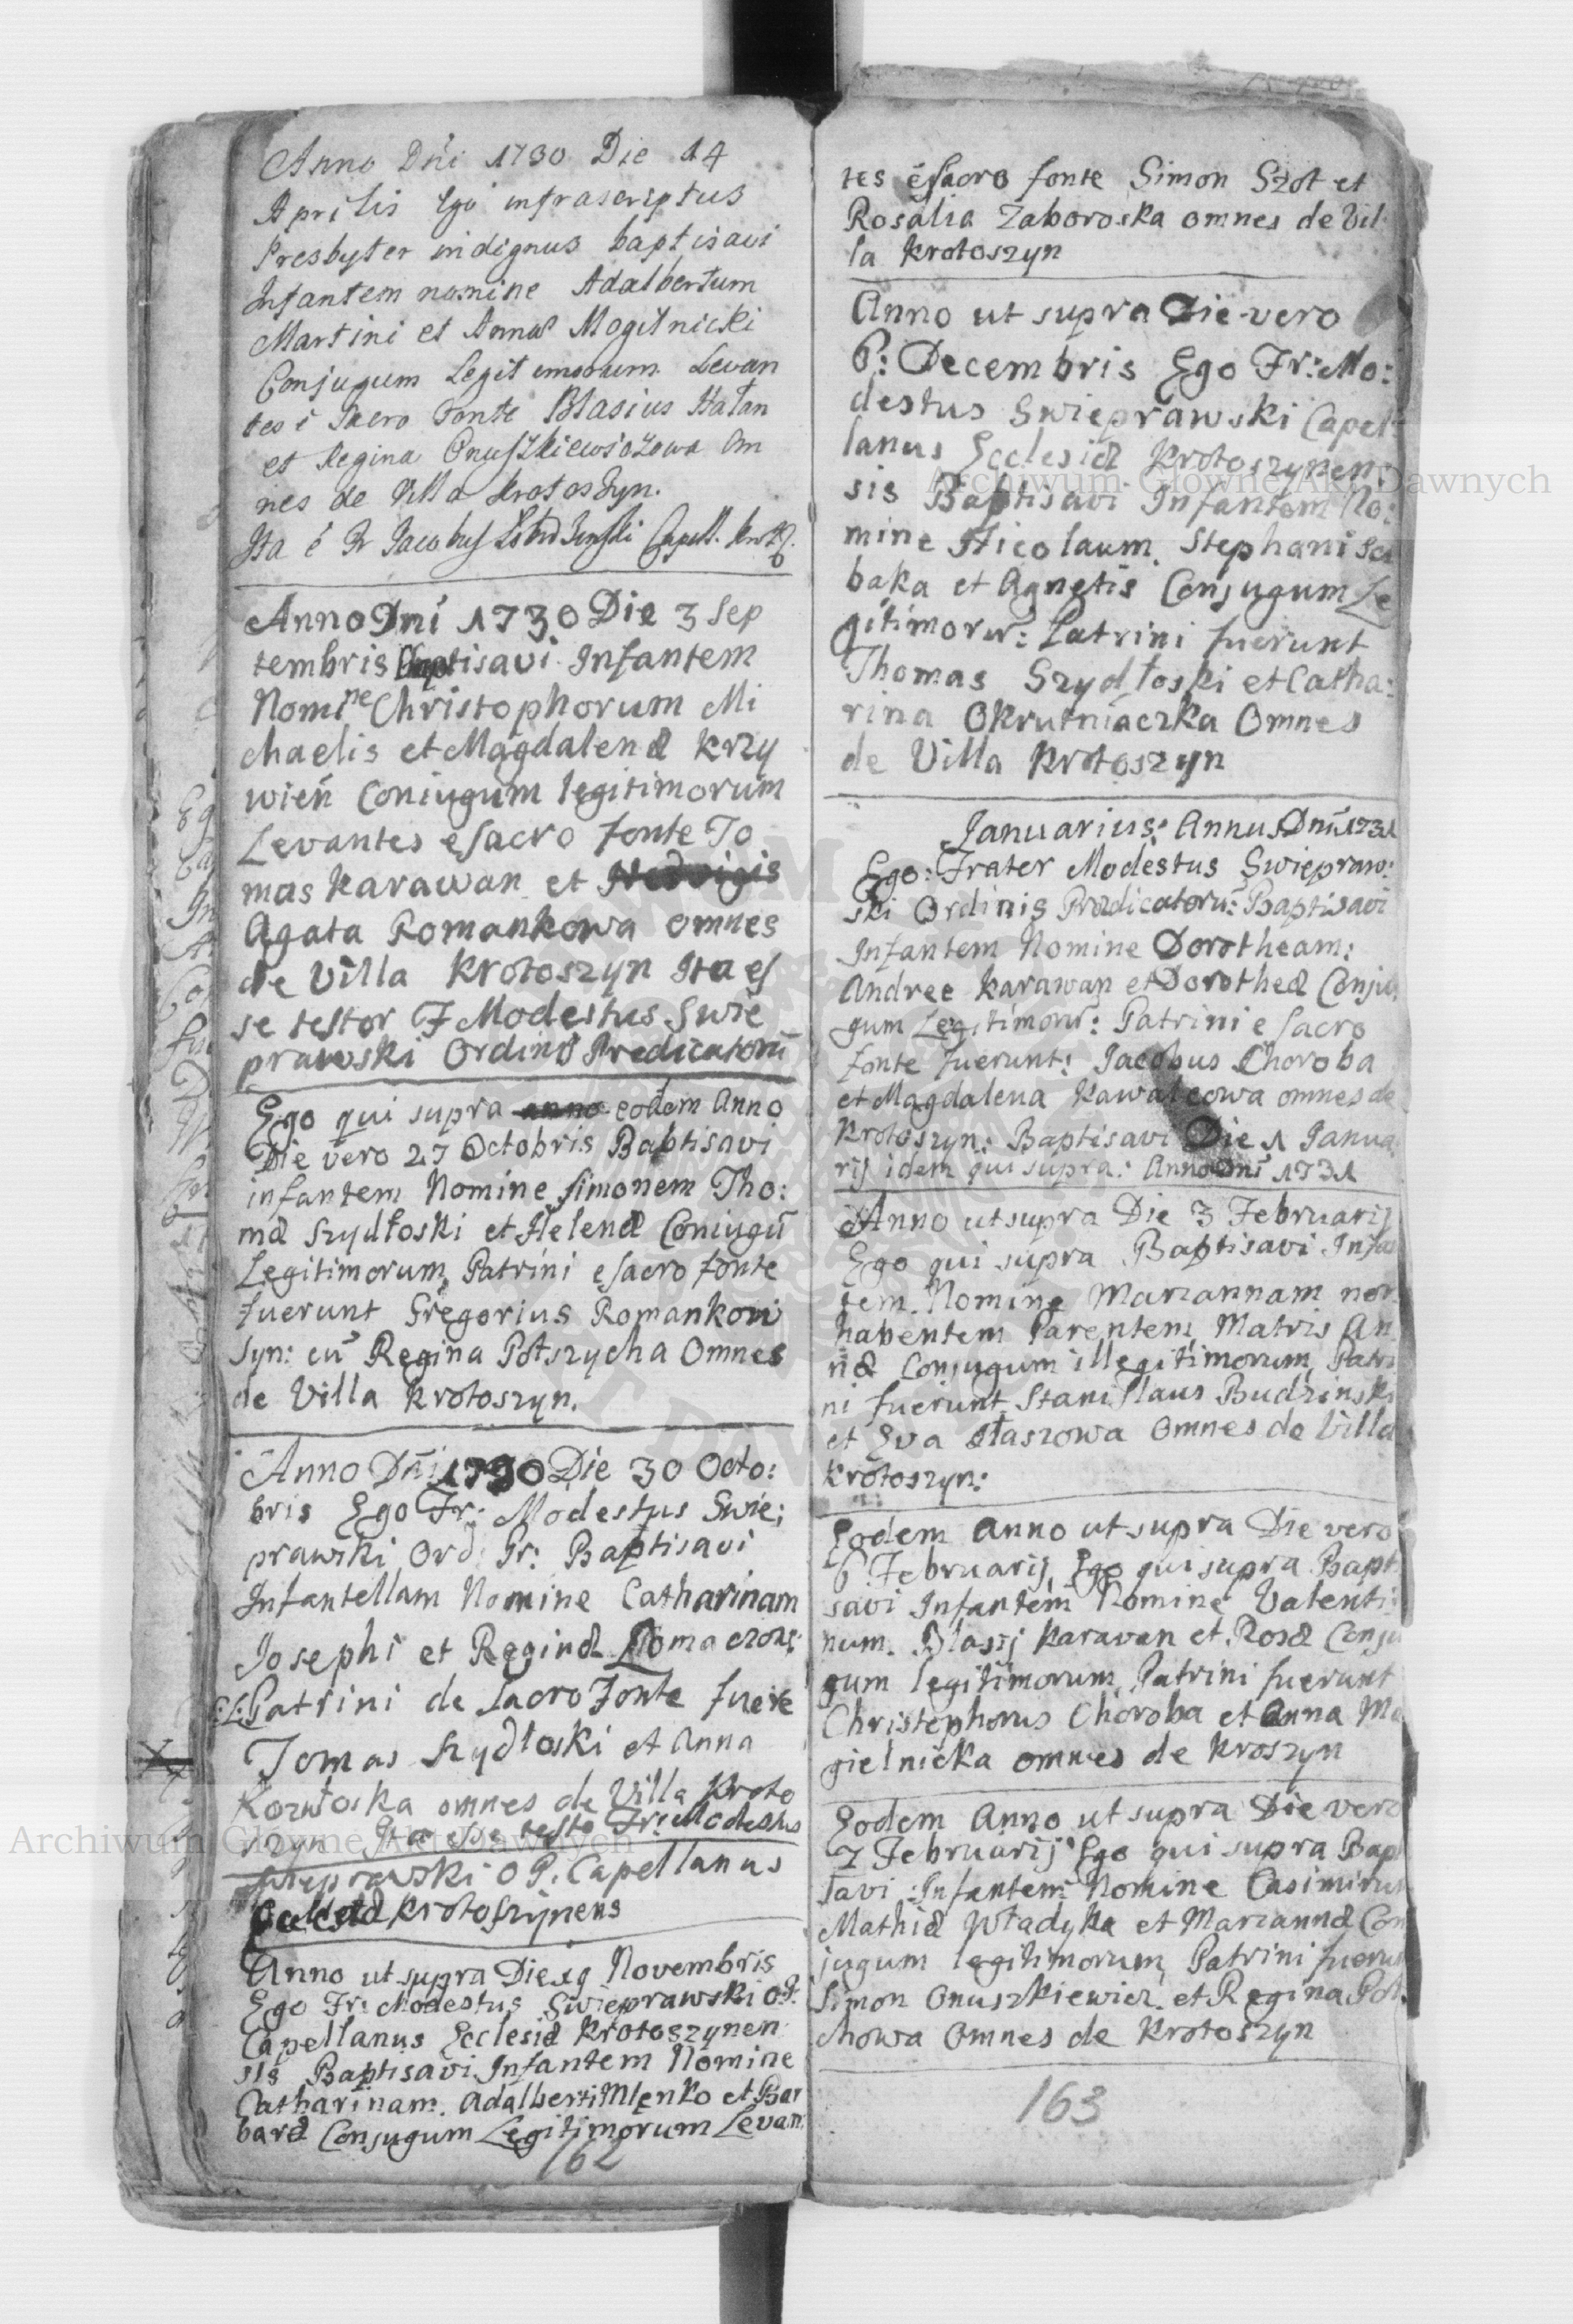 Anno Dńi 1730 Die 14
Aprilis Ego infrascriptus
Presbyter indignus baptisavi
Infantem nomine Adalbertum
Martini et Annæ Mogilnicki
Conjugum Legitimorum Levan
tes è Sacro Fonte Blasius Hałan
et Regina Onuszkiewiczowa Om
nes de Villa Krotoszyn.
Ita é Fr Jacobus Capell. Krot
Anno Dńi 1730 Die 3 Sep
tembris Baptisavi Infantem
Nomine Christophorum Mi
chaelis et Magdalenæ Krzy
wień Coniugum legitimorum
Levantes e sacro fonte To
mas Karawan et Hedvigis
Agata Romankowa omnes
de Villa Krotoszyn Ita es
se testor F Modestus Swie
prawski Ordinis Predicatorū
Ego qui supra anno eodem Anno
Die vero 27 Octobris Baptisavi
infantem Nomine Simonem Tho:
mæ Szydłoski et Helenæ Coniugū
Legitimorum, Patrini e sacro fonte
fuerunt Gregorius Romankow
Syn: cū Regina Połszycha Omnes
de Villa Krotoszyn.
Anno Dńi 1730 Die 30 Octo:
bris Ego Fr: Modestus Swie:
prawski Ord: Pr: Baptisavi
Infantellam Nomine Catharinam
Josephi et Reginæ
C: L: Patrini de sacro Fonte fuere
Tomas Szydłoski et Anna
Kozłoska omnes de Villa Kroto
szyn Ita esse testor Fr: Modestus
Swieprawski O P. Capellanus
Krotoszynens
Anno ut supra Die 19 Novembris
Ego Fr: Modestus Swieprawski O.P.
Capellanus Ecclesiæ Krotoszynen
sis Baptisavi Infantem Nomine
Catharinam. Adalberti Mlenko et Bar
baræ Conjugum Legitimorum Levan
162
tes è sacro fonte Simon Szot et
Rosalia Zaboroska omnes de Vil
la Krotoszyn
Anno ut supra Die vero
6: Decembris Ego Fr: Mo:
destus Swieprawski Capel
lanus Ecclesiæ Krotoszynen:
sis Baptisavi Infantem No:
mine Nicolaum. Stephani
baka et Agnetis Conjugum Le
gitimorū: Patrini fuerunt
Thomas Szydłoski et Catha:
rina Okrutniaczka Omnes
de Villa Krotoszyn
Januarius: Annus Dnī: 1731
Ego: Frater Modestus Swiepraw:
ski Ordinis Prædicatorū: Baptisavi
Infantem Nomine Dorotheam:
Andree Karawan et Dorotheæ Conju
gum Legitimorū: Patrini e sacro
fonte fuerunt: Jacobus Choroba
et Magdalena Kawalcowa omnes de
Krotoszyn: Baptisavi Die 1 Janua
rij idem qui supra: Anno Dnī 1731
Anno ut supra Die 3 Februarij
Ego qui supra Baptisavi Infan
tem Nomine Mariannam non
habentem Parentem Matris An
næ Conjugum illegitimorum, Patri
ni fuerunt Stanislaus Budzinski
et Eva Omnes de Villa
Krotoszyn:
Eodem Anno ut supra Die vero
6 Februarij Ego qui supra Bapti
savi Infantem Nomine Valenti:
num. Blasij Karavan et Rosæ Conju
gum legitimorum, Patrini fuerunt
Christophorus Choroba et Anna Mo
gielnicka omnes de Kroszyn
Eodem Anno ut supra Die vero
7 Februarij Ego qui supra Bapt
savi Infantem Nomine Casimirum
Mathiæ Władyka et Mariannæ Con
jugum legitimorum, Patrini fuerun
Simon Onuszkiewicz et Regina Poł
chowa Omnes de Krotoszyn
163
Archiwum Główne Akt Dawnych
Archiwum Główne Akt Dawnych